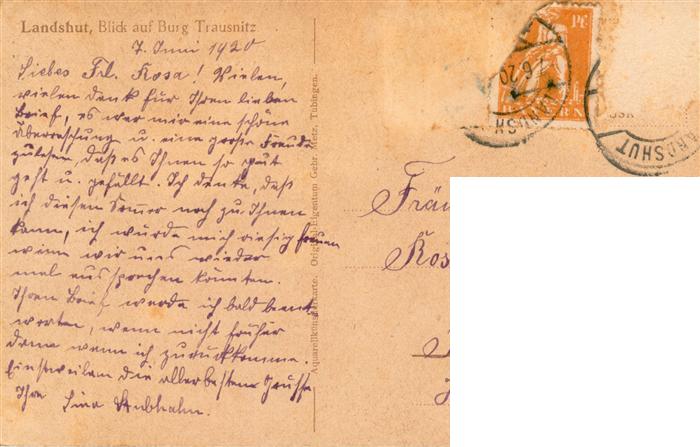 Landshut, Blick auf Burg Trausnitz
7. Juni 1920
Liebes Frl. Rosa! Vielen,
vielen Dank für Ihren lieben
Brief, es war mir eine schöne
Überraschung u. eine große Freude
zu lesen, daß es Ihnen so gut
geht u. gefällt. Ich denke, daß
ich diesen Sommer noch zu Ihnen
kann, ich würde mich riesig freuen
wenn wir uns wieder
mal aussprechen könnten.
Ihren Brief werde ich bald beant
worten, wenn nicht früher
dann wenn ich zurückkomme.
Einstweilen die allerbesten Grüsse
Ihre Lina
Aquarellkünstlerkarte. Original-Eigentum Gebr. Metz, Tübingen.
Pf.
7.6.20
LANDSH
ERN
RDSHUT
Fräu
Ros